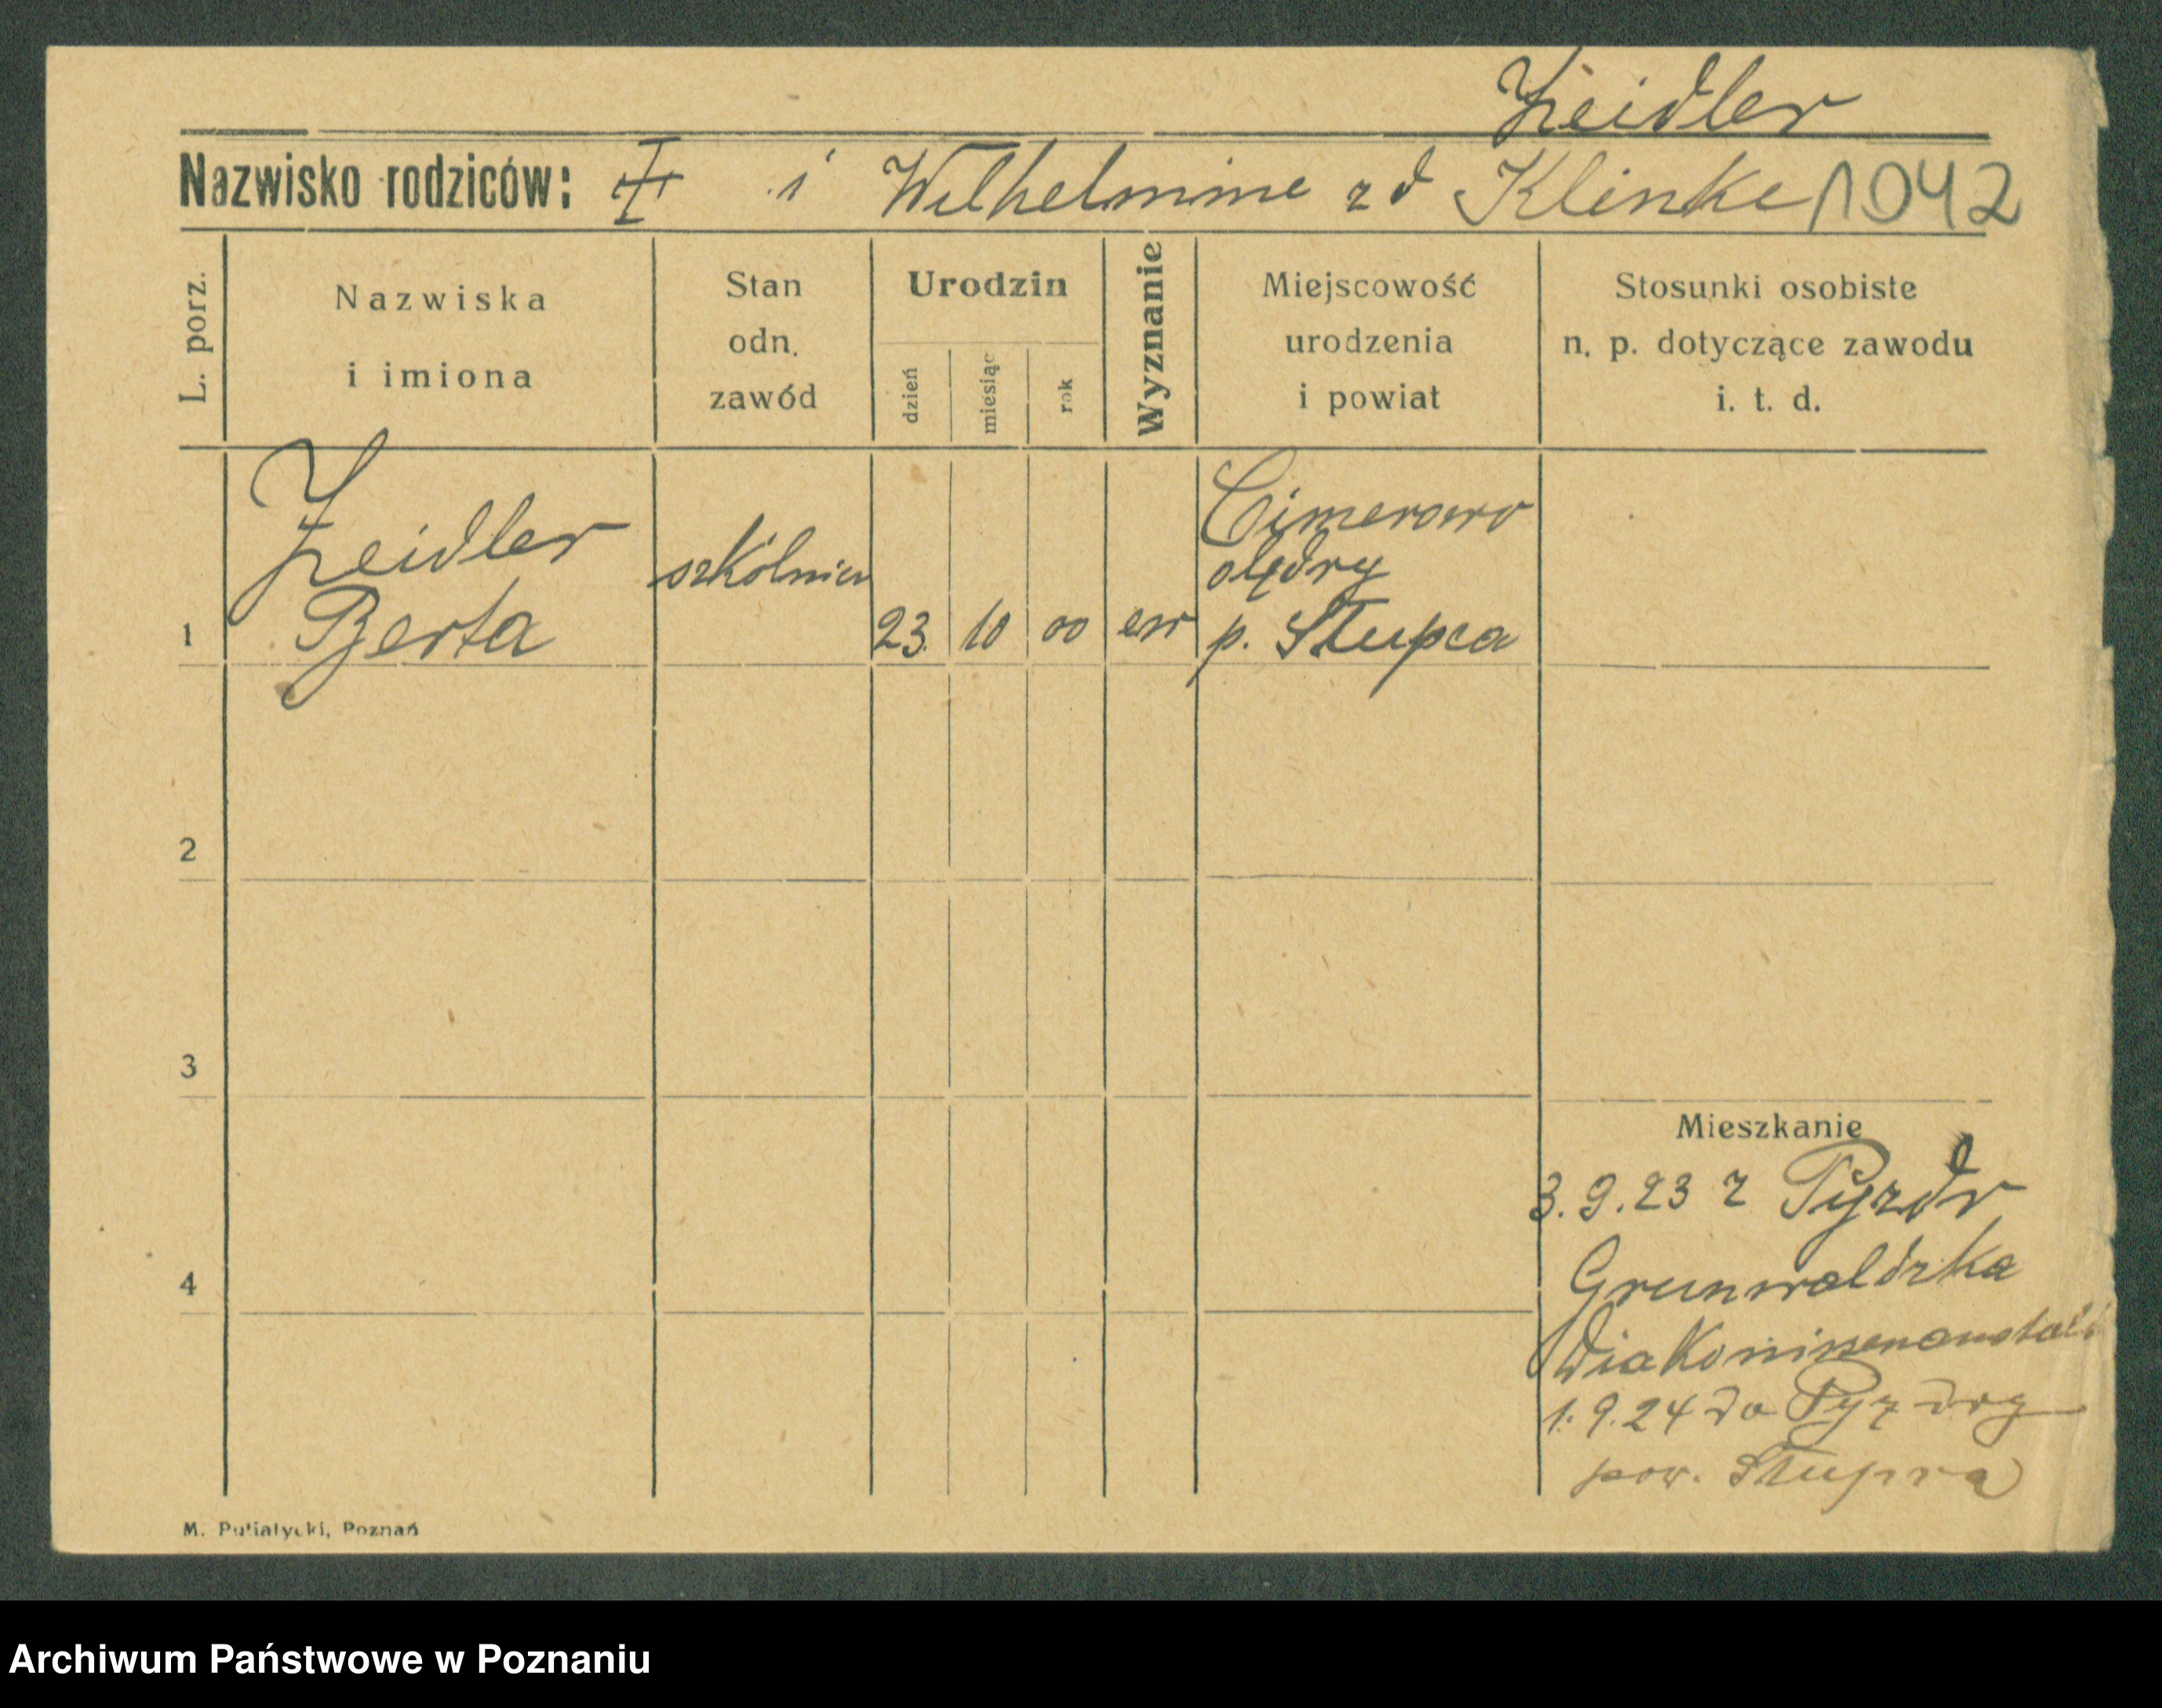 Zeidler
Nazwisko rodziców: I i Wilhelmine zd Klinke 1042
L. porz.
Nazwiska
i imiona
Stan
odn.
zawód
Urodzin
dzień
miesiąc
rok
Wyznanie
Miejscowość
urodzenia
i powiat
Stosunki osobiste
n. p. dotyczące zawodu
i. t. d.
1
Zeidler
Berta
23. 10 00 ew
olędry
p. Słupca
2
3
4
Mieszkanie
3.9.23 z Pyzdr
Grunwaldzka
1.9.24 do Pyzdry
pow. Słupca
M. Putiatycki, Poznań
Archiwum Państwowe w Poznaniu